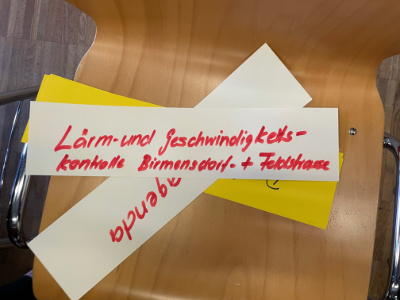 Lärm- und Geschwindigkeits-
kontrolle Birmensdorf- + Feldstrasse
genda